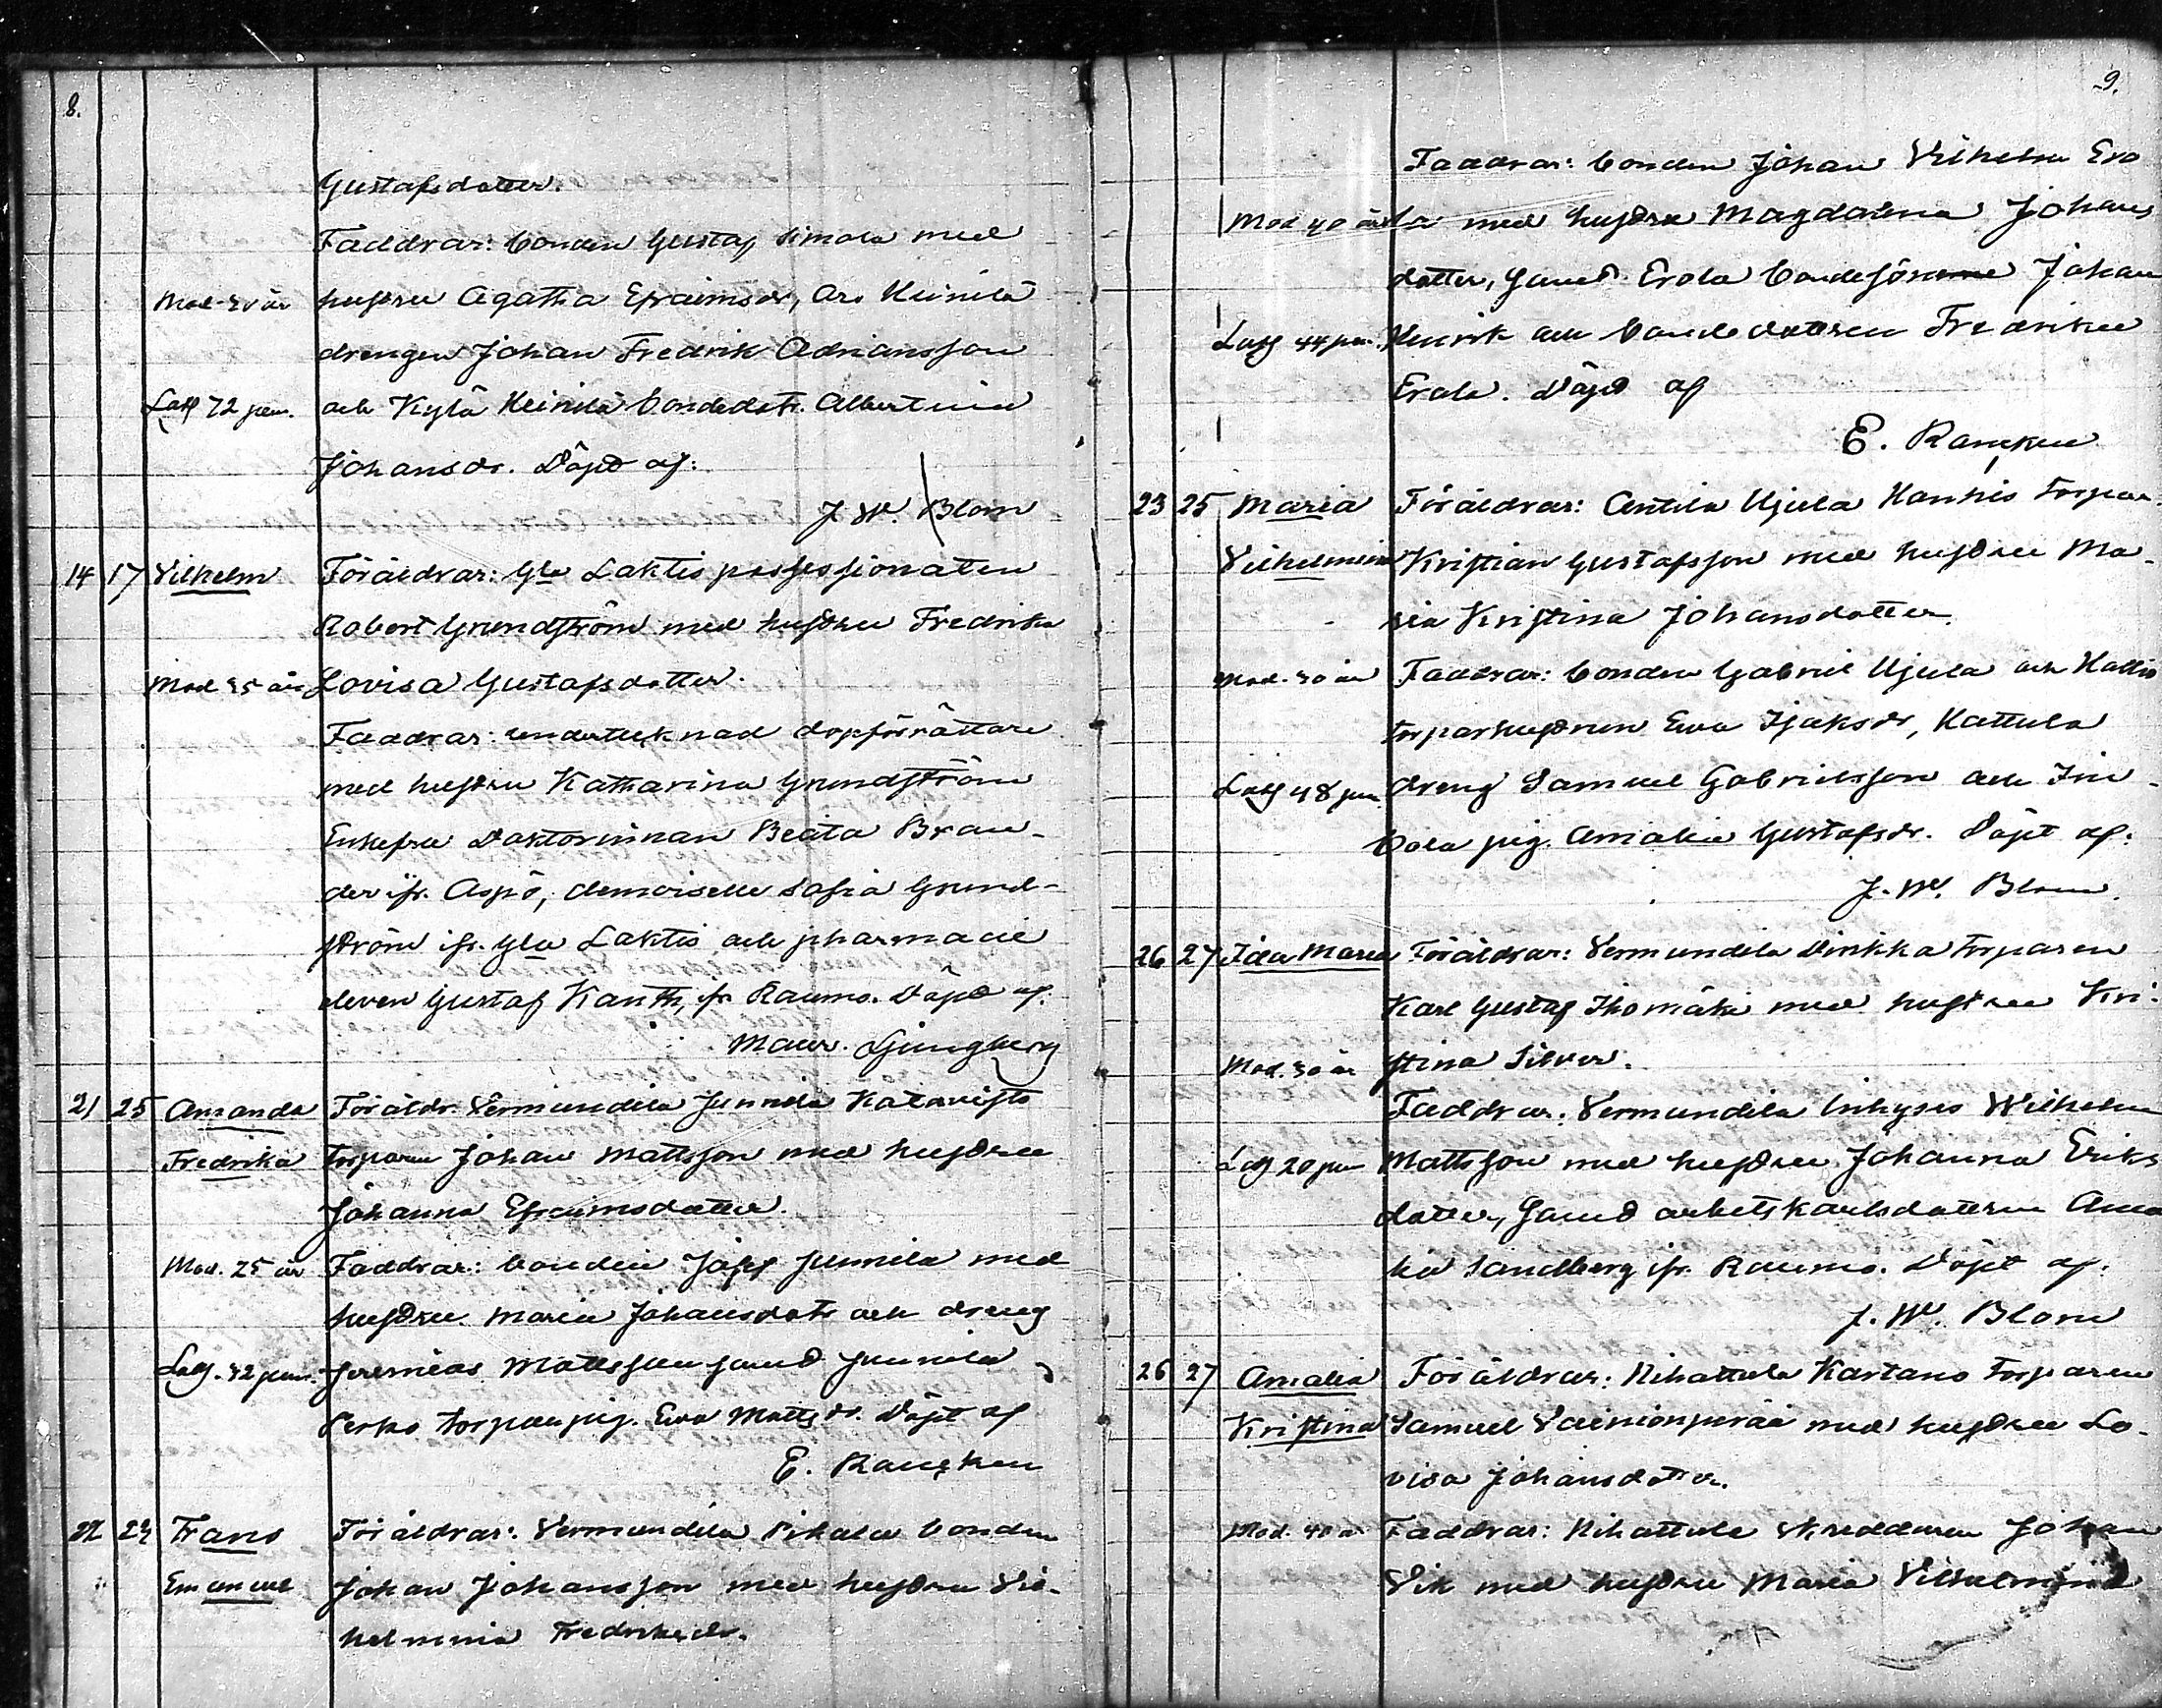 8.
Gustafsdotter.
Faddrar: bonden Gustaf Simola med
Mod. 30 år hustru Agatha Efraimsdr, Aro Heinilä
drengen Johan Fredrik Adriansson
72 pen. och Kylä Heinilä bondedotr. Albertina
Johansdr. Döpt af:
J. W. Blom
14 17 Vilhelm Föräldrar: Gla Laktis possessionaten
Robert Grundström med hustru Fredrika
Mod 35 år Lovisa Gustafsdotter.
Faddrar: undertecknad dopförrättare
med hustru Katharina Grundström
Enkefru Doktorinnan Beata Bran-
der ifr. Aspö, demoiselle Sofia Grund-
ström ifr. Gla Laktis och pharmacie
eleven Gustaf Kanth, ifr Raumo. Döpt af:
Maur. Ljungberg
21 25 Amanda Föräldr. Vermundila Junnila Katavisto
Fredrika torparen Johan Mattsson med hustru
Johanna Efraimsdotter.
Mod. 25 år Faddrar: bonden Josef Junnila med
hustru Maria Johansdotr och dreng
32 pen. Jeremias Mattsson samt Junnila
Perko torpar pig. Eva Mattsdr. Döpt af
E. Rancken
22 Frans Föräldrar: Vermundila Pikala bonden
Emanuel Johan Johansson med hustru Vil-
helmina Fredriksdr.
9.
Faddrar: bonden Johan Vilhelm Ero
Mod 40 år la med hustru Magdalena Johans
dotter, samt Erola bondesonen Johan
44 pen. Henrik och bondedottren Fredrika
Erola. Döpt af
E. Rancken
23 25 Maria Föräldrar: Anttila Ujula Hanhis torpar.
Vilhelmina Kristian Gustafsson med hustru Ma-
ria Kristina Johansdotter.
Mod. 30 år Faddrar: bonden Gabriel Ujula och Hattis
torparhustrun Eva Isaksdr, Kattula
48 pen. dreng Samuel Gabrielsson och Im-
bola pig. Amalia Gustafsdr. Döpt af:
J. W. Blom.
26 27 Ida Maria Föräldrar: Vermundila Dirikka torparen
Karl Gustaf Ihomäki med hustru Kri-
Mod. 30 år stina Silver.
Faddrar: Vermundila inhyses Wilhelm
20 pen Mattsson med hustru Johanna Eriks
dotter, samt arbetskarlsdottern Ama
lia Sandberg ifr. Raumo. Döpt af:
J. W. Blom
26 27 Amalia Föräldrar: Kihattula Kartano torparen
Kristina Samuel Vainionperää med hustru Lo-
visa Johansdotter.
Mod. 40 år Faddrar: Kihattula skreddaren Johan
Vik med hustru Maria Vilhelmina